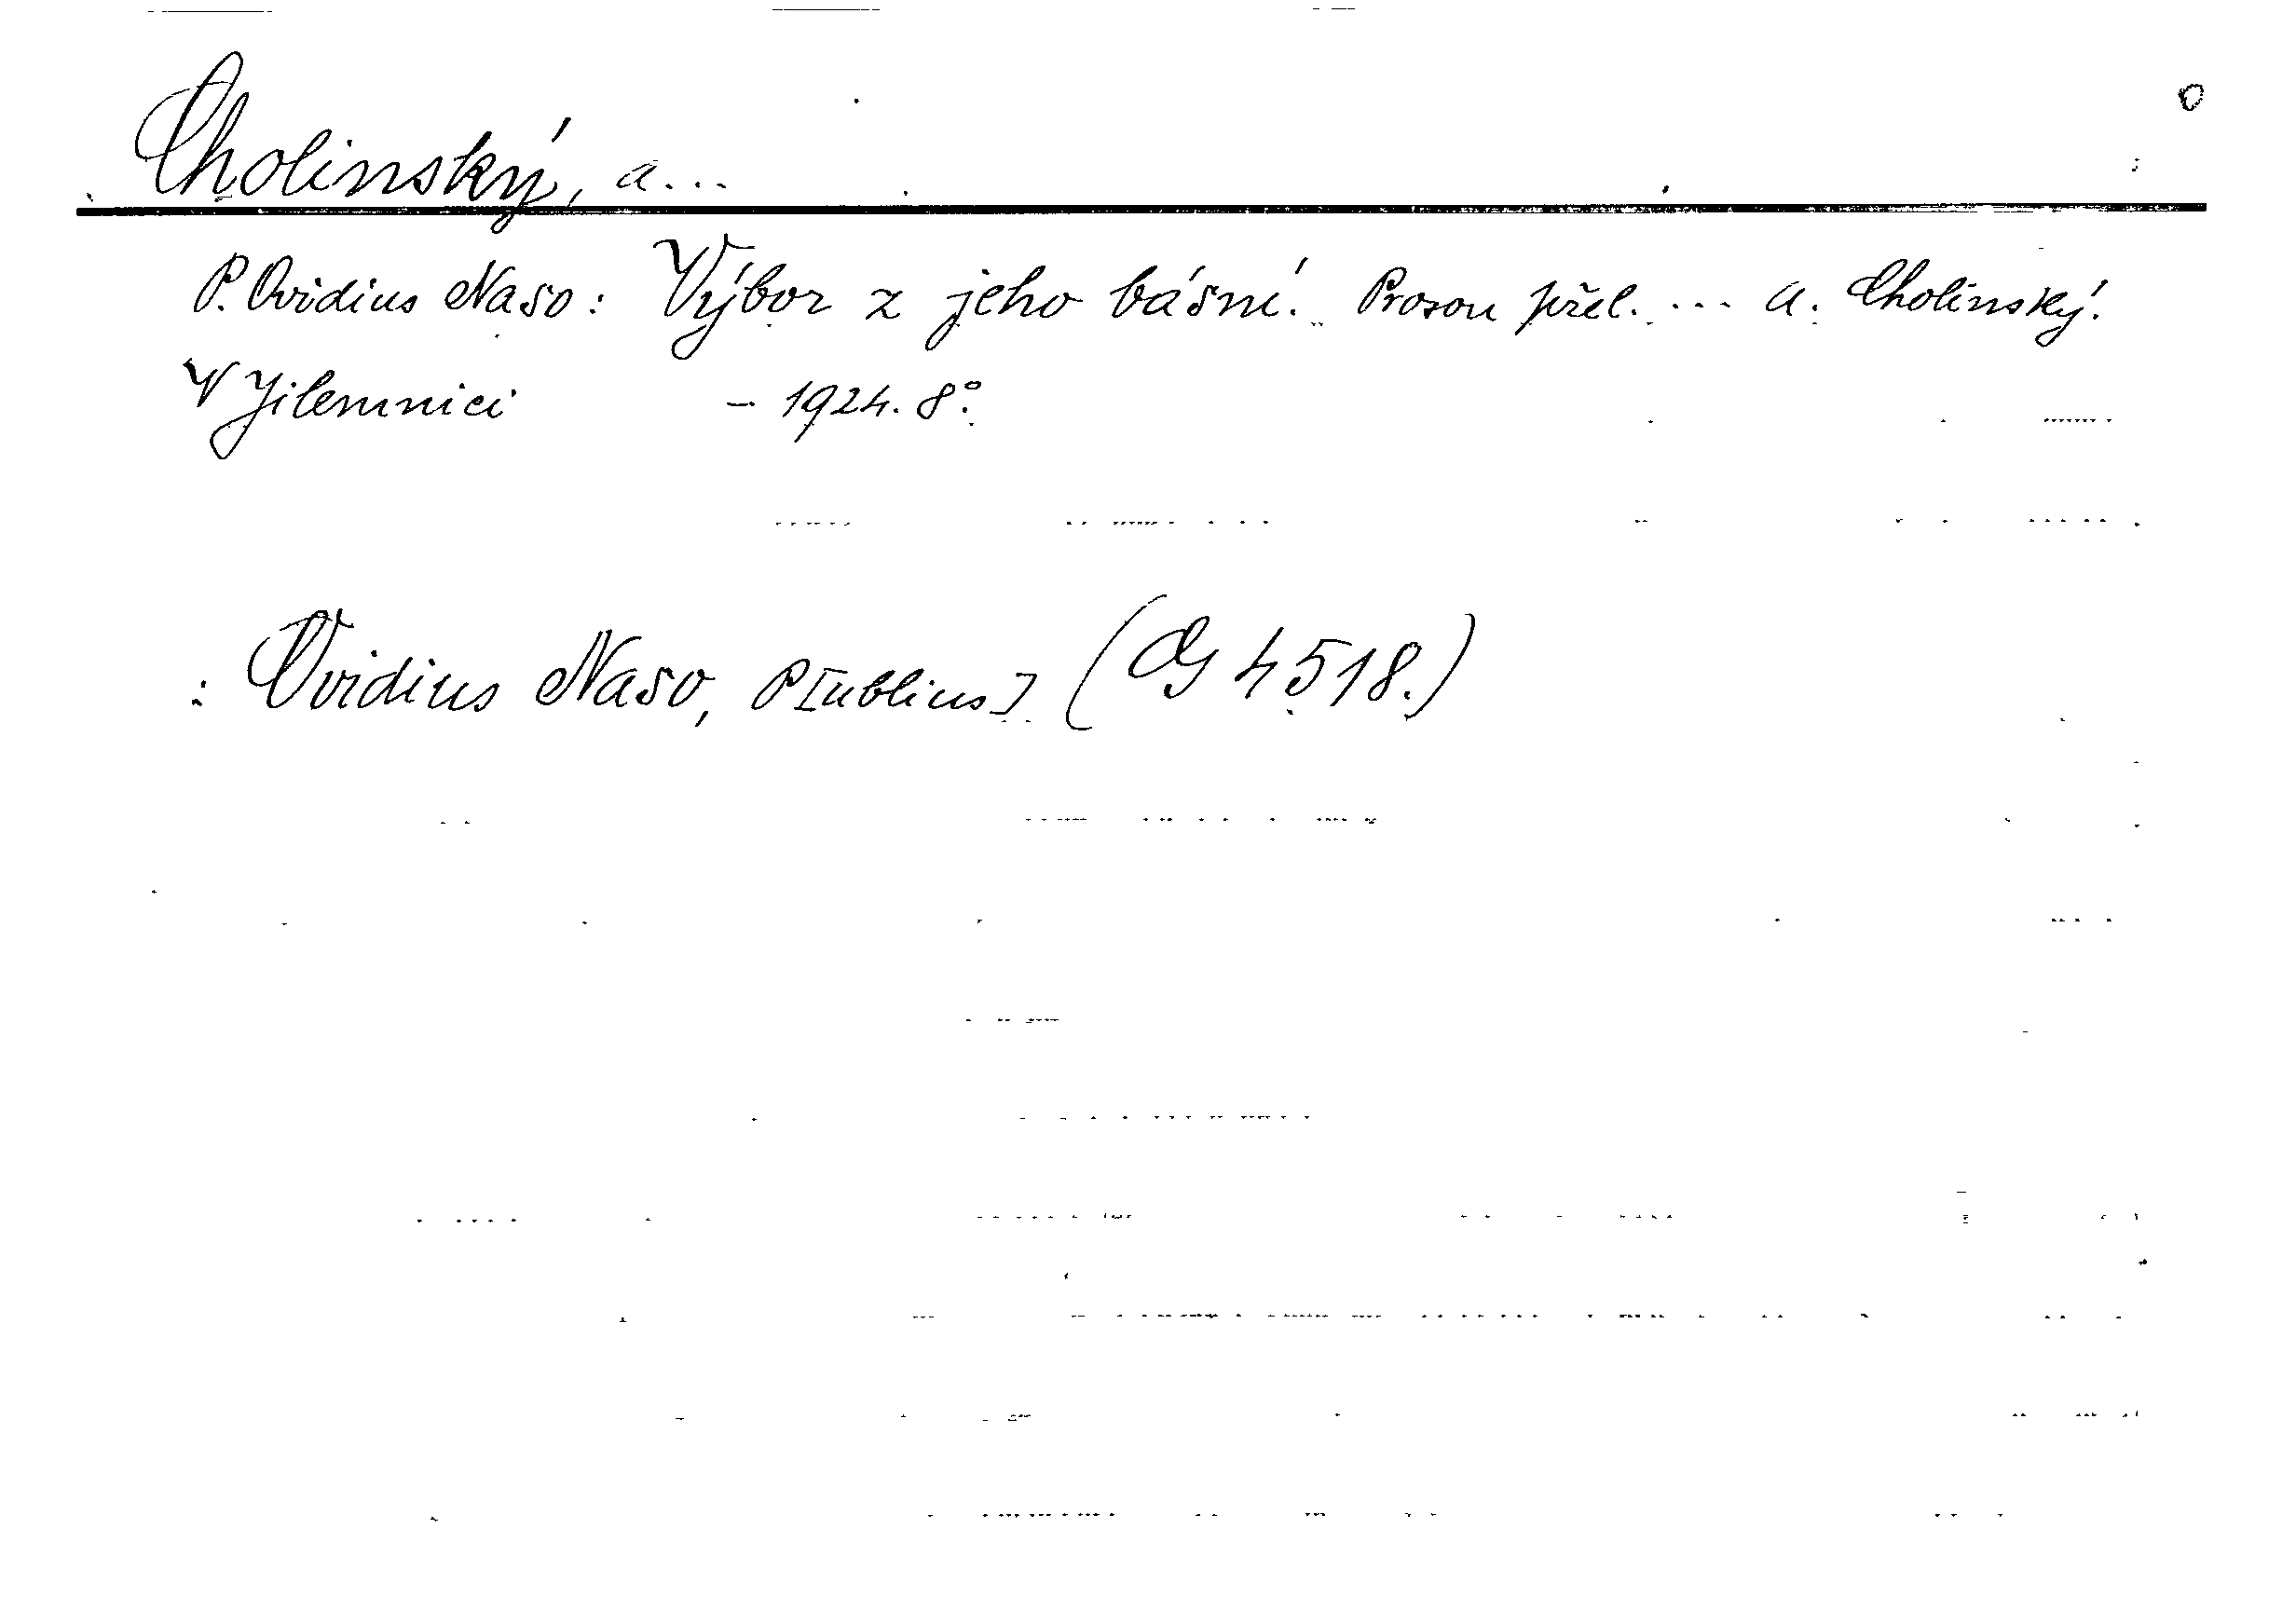 Cholinský, A...
P. Ovidius Naso: Výbor z jeho básní. Prosou přel. ... A. Cholinský.
V Jilemnici - 1924. 8°.
: Ovidius Naso, P[ublius] (G 4518.)